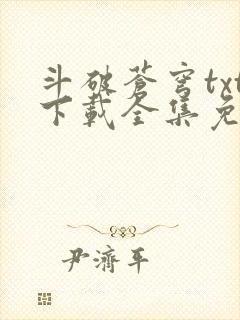 斗破苍穹txt
下载全集免
尹濟平